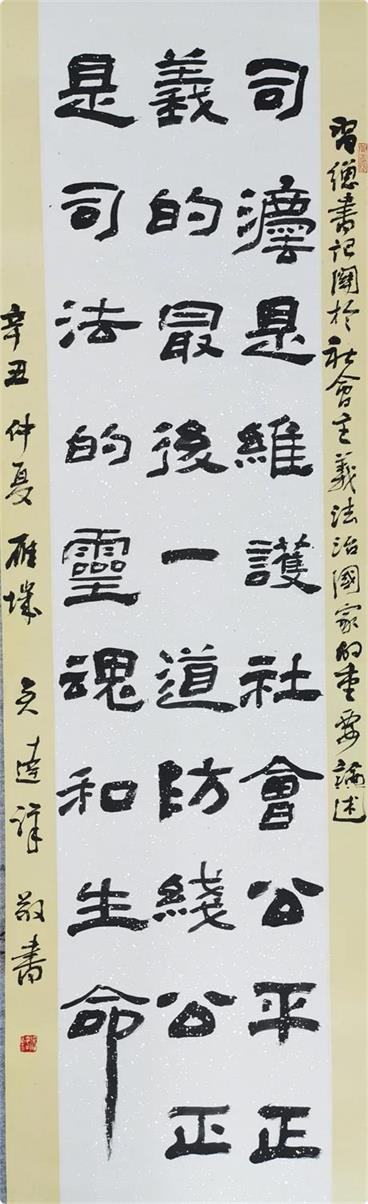 習總書記關於社會主義法治國家的重要論述
司灋是維護社會公平正
義的最後一道防綫公正
是司法的靈魂和生命
辛丑 仲夏 雁城 敬書